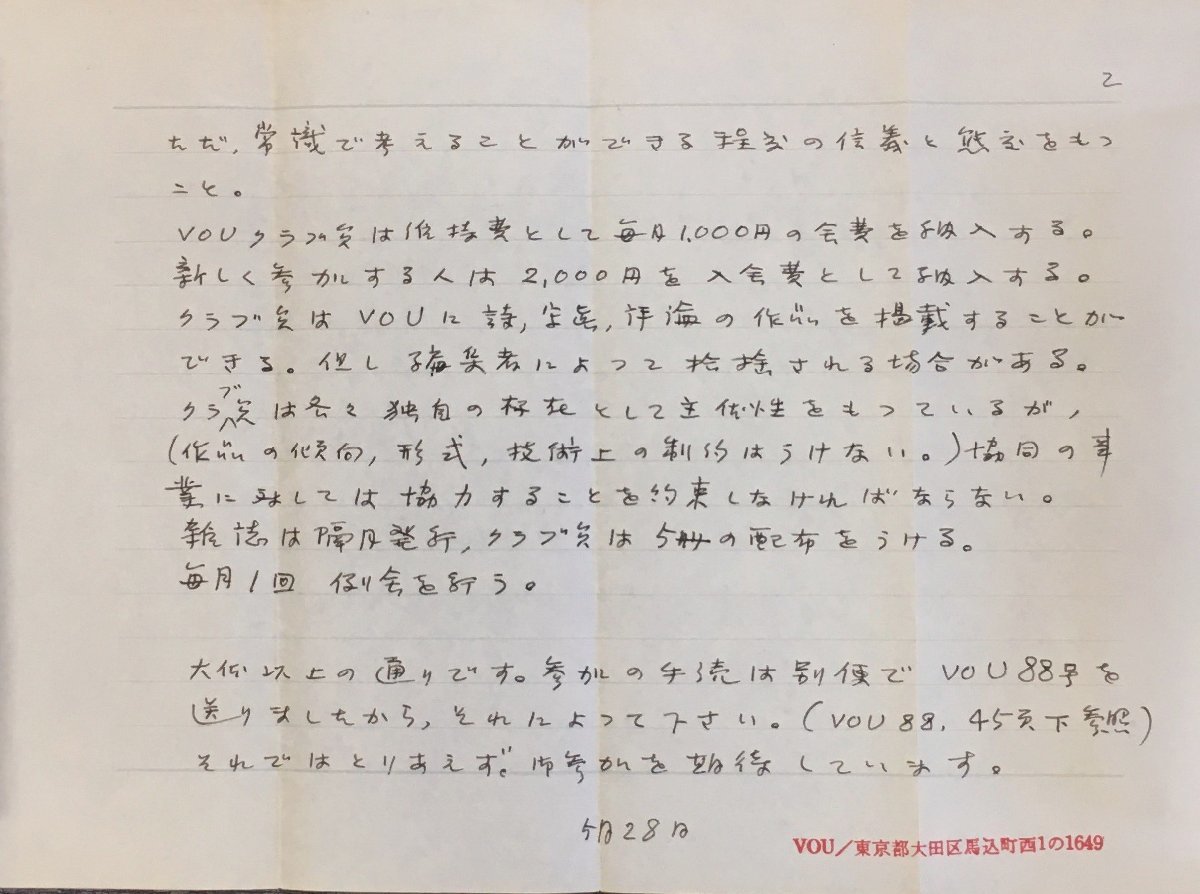 2
ただ、常識で考えることができる程度の信義と態度をもつ
こと。
VOUクラブ員は維持費として毎月1,000円の会費を納入する。
新しく参加する人は2,000円を入会費として納入する。
クラブ員はVOUに詩,写真,評論の作品を掲載することが
できる。但し編集者によって取捨される場合がある。
クラブ員は各々独自の存在として主体性をもっているが,
(作品の傾向,形式,技術上の制約はうけない。)協同の事
業に対しては協力することを約束しなければならない。
雑誌は隔月発行,クラブ員は5册の配布をうける。
毎月1回 例会を行う。
大体以上の通りです。参加の手続は別便でVOU88号を
送りましたから,それによって下さい。(VOU88, 45頁下参照)
それではとりあえず。御参加を期待しています。
5月28日
VOU/東京都大田区馬込町西1の1649